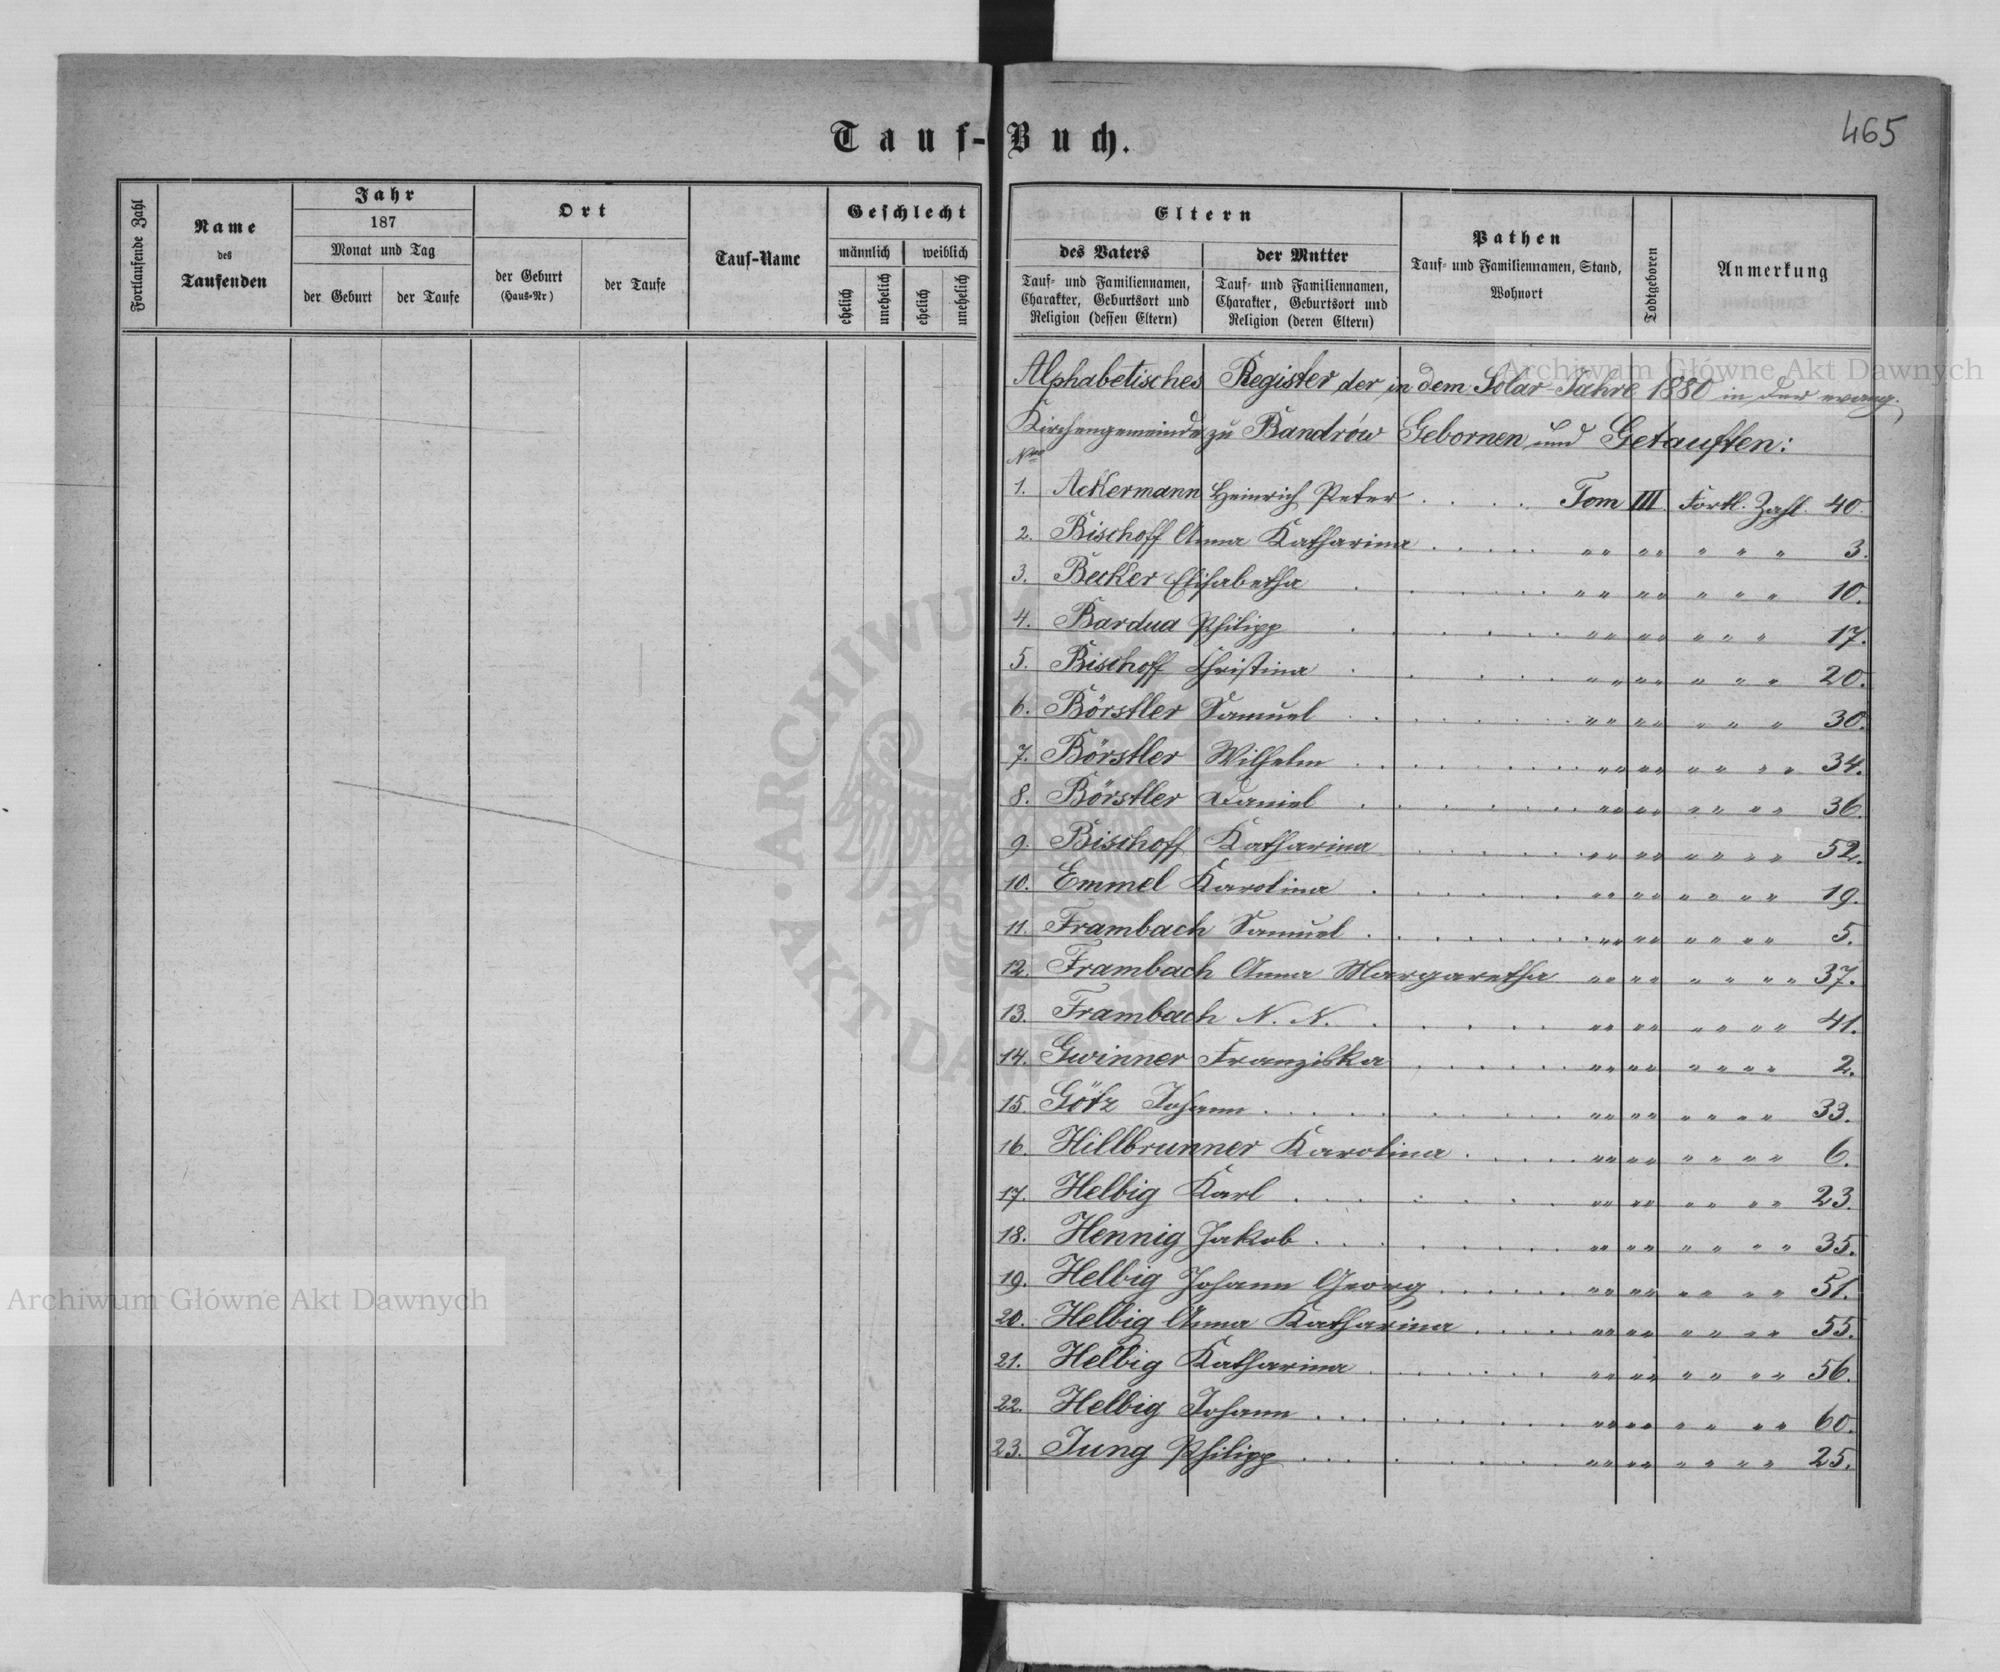 465
Tauf-Buch.
Fortlaufende Zahl
Name
des
Taufenden
Jahr
187
Monat und Tag
der Geburt
der Taufe
Ort
der Geburt
(Haus-Nr)
der Taufe
Tauf-Name
Geschlecht
männlich
weiblich
ehelich
unehelich
ehelich
unehelich
Eltern
des Vaters
Tauf- und Familiennamen,
Charakter, Geburtsort und
Religion (dessen Eltern)
der Mutter
Tauf- und Familiennamen,
Charakter, Geburtsort und
Religion (deren Eltern)
Pathen
Tauf- und Familiennamen, Stand,
Wohnort
Todtgeboren
Anmerkung
Alphabetisches Register der in dem Solar-Jahre 1880 in der evang.
Kirchengemeinde zu Bandrów Gebornen und Getauften:
Nro
1. Ackermann Heinrich Peter . . . . Tom III Fortl. Zahl 40.
2. Bischoff Anna Katharina . . . . . „ „ „ „ „ „ „ 3.
3. Becker Elisabetha . . . . . . „ „ „ „ „ „ „ 10.
4. Bardua Philipp . . . . . . „ „ „ „ „ „ „ 17.
5. Bischoff Christina . . . . . „ „ „ „ „ „ „ 20.
6. Börstler Samuel . . . . . . „ „ „ „ „ „ „ 30.
7. Börstler Wilhelm . . . . . . „ „ „ „ „ „ „ „ 34.
8. Börstler Daniel . . . . . . „ „ „ „ „ „ „ „ 36.
9. Bischoff Katharina . . . . . „ „ „ „ „ „ „ „ 52.
10. Emmel Karolina . . . . . . „ „ „ „ „ „ „ „ 19.
11. Frambach Samuel . . . . . . „ „ „ „ „ „ „ „ 5.
12. Frambach Anna Margaretha „ „ „ „ „ „ „ „ 37.
13. Frambach N. N. . . . . . „ „ „ „ „ „ „ „ 41.
14. Gwinner Franziska . . . . . „ „ „ „ „ „ „ „ 2.
15. Götz Johann . . . . . . . „ „ „ „ „ „ „ „ 33.
16. Hillbrunner Karolina . . . . . „ „ „ „ „ „ „ „ 6.
17. Helbig Karl . . . . . . „ „ „ „ „ „ „ „ 23.
18. Hennig Jakob . . . . . . . „ „ „ „ „ „ „ „ 35.
19. Helbig Johann Georg . . . . . . „ „ „ „ „ „ „ „ 51.
20. Helbig Anna Katharina . . . . . „ „ „ „ „ „ „ „ 55.
21. Helbig Katharina . . . . . . „ „ „ „ „ „ „ „ 56.
22. Helbig Johann . . . . . . . „ „ „ „ „ „ „ „ 60.
23. Jung Philipp . . . . . . . „ „ „ „ „ „ „ „ 25.
Archiwum Główne Akt Dawnych
Archiwum Główne Akt Dawnych
ARCHIWUM
AKT DAWNYCH